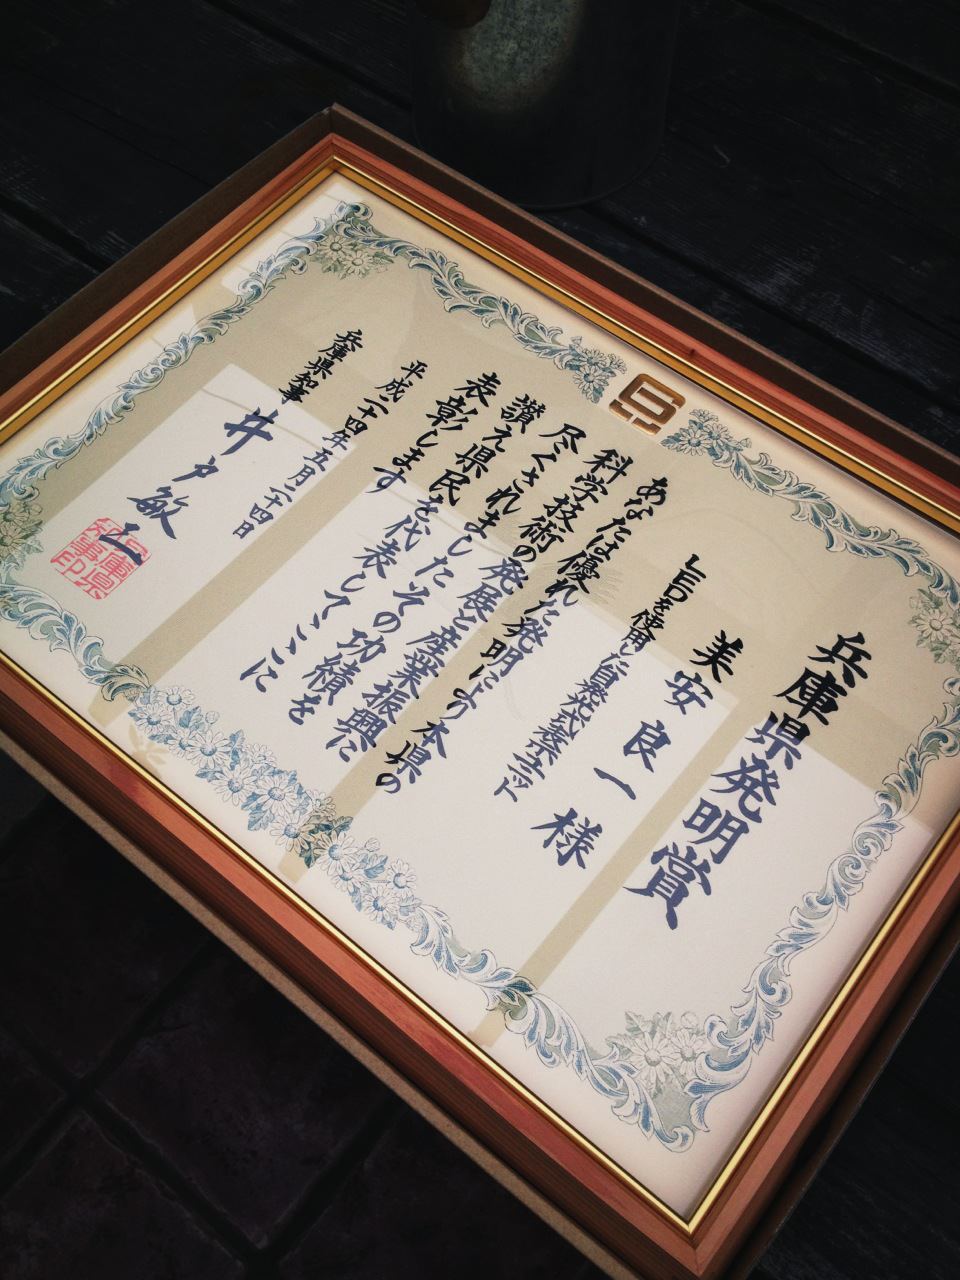 兵庫県発明賞
美安良一様
LEDを使用した自発光式ユニット
あなたは優れた発明により本県の
科学技術の発展と産業振興に
尽くされましたその功績を
讃え県民を代表してここに
表彰します
平成二十四年五月二十四日
兵庫県知事
井戸敏三
兵庫県知事印